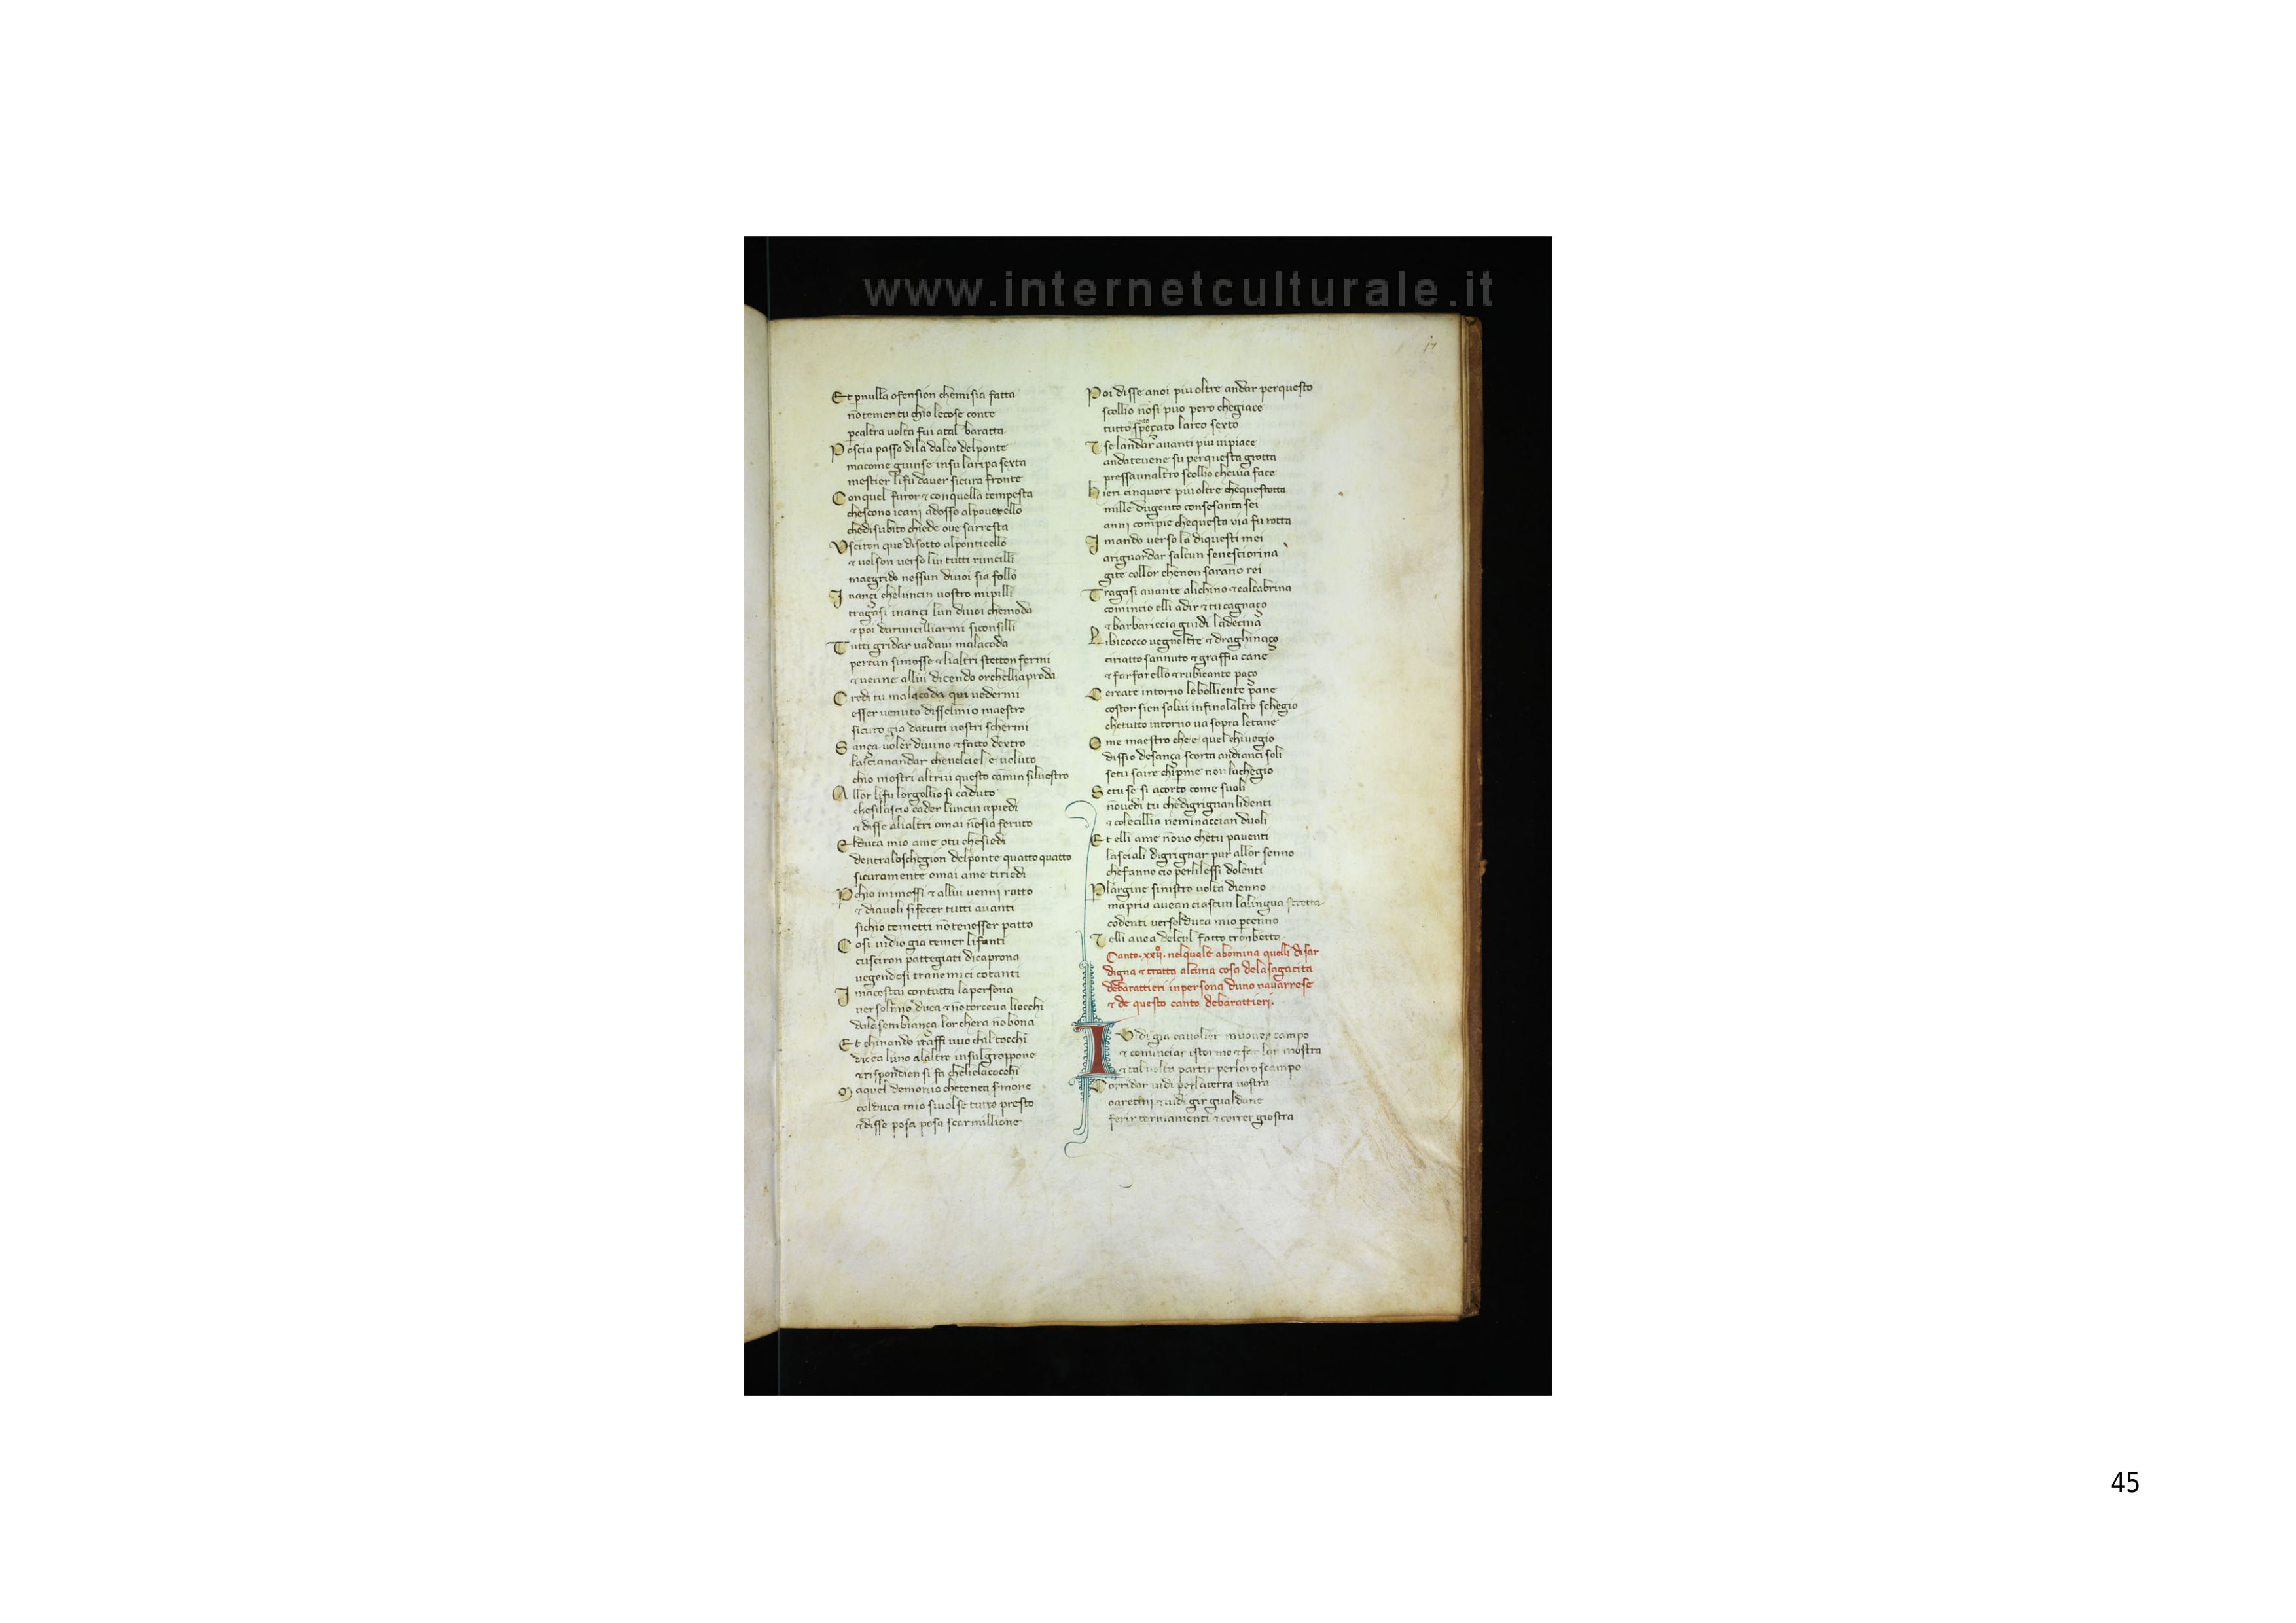 www.internetculturale.it
17
Et p nulla ofension chemisia fatta
nō temer tu chio lecose conte
pcaltra uolta fui atal baratta
Poscia passo dila dalco delponte
macome giunse insu laripa sexta
mestier lifu dauer sicura fronte
Conquel furor ⁊ conquella tempesta
chescono icani adosso alpouerello
chedisubito chiede oue sarresta
Usciron que disotto alponticello
⁊ uolson uerso lui tutti runcilli
maegrido nessun diuoi sia follo
Inançi cheluncin uostro mipilli
tragasi inançi lun diuoi chemoda
⁊ poi daruncilliarmi siconsilli
Tutti gridar uadaui malacoda
percun simosse ⁊ lialtri stetton fermi
⁊ uenne allui dicendo orchelliaproda
Credi tu malacoda qui uedermi
esser uenuto disselmio maestro
sicuro gia datutti uostri schermi
Sança uoler diuino ⁊ fatto dextro
lascianandar chenelciel e uoluto
chio mostri altrui questo camin siluestro
Allor lifu lorgollio si caduto
chesilascio cader luncin apiedi
⁊ disse alialtri omai nōsia feruto
Elduca mio ame otu chesiedi
dentraloschegion delponte quatto quatto
sicuramente omai ame tiriedi
Pchio mimossi ⁊ allui uenni ratto
⁊ diauoli sifecer tutti auanti
sichio temetti nō tenesser patto
Cosi uidio gia temer lifanti
cusciron pattegiati dicaprona
uegendosi tranemici cotanti
I macostai contutta lapersona
uersolmio duca ⁊ nō torceua liocchi
dalasembiança lor chera nōbona
Et chinando iraffi uuo chil tocchi
dicea luno alaltro insulgroppone
⁊ rispondien si fa chelielacocchi
Maquel demonio chetenea smone
colduca mio siuolse tutto presto
⁊ disse posa posa scarmillione
Poi disse anoi piu oltre andar perquesto
scollio nosi puo pero chegiace
tutto speçato larco sexto
⁊ selandar auanti piu uipiace
andateuene su perquesta grotta
pressaunaltro scollio cheuia face
hieri cinquore piu oltre chequestotta
mille dugento consesanta sei
anni compie chequesta uia fu rotta
I mando uerso la diquesti mei
ariguardar salcun senesciorina
gite collor chenon saranno rei
Tragasi auante alichino ⁊ calcabrina
comincio elli adir ⁊ tu cagnaço
⁊ barbariccia guidi ladecina
Libicocco uegnoltre ⁊ draghinaço
ciriatto sannuto ⁊ graffia cane
⁊ farfarello ⁊ rubicante paço
Cercate intorno lebolliente pane
costor sien salui infinalaltro schegio
chetutto intorno ua sopra letane
Ome maestro che e quel chiuegio
dissio desança scorta andianci soli
setu saire chiperme non lachegio
Setu se si acorto come suoli
nōuedi tu chedigrignan lidenti
⁊ colecillia neminaccian duoli
Et elli ame nōuo chetu pauenti
lasciali digrignar pur allor senno
chefanno cio perlilessi dolenti
Plargine sinistro uolta dienno
mapria auean ciascun lalingua stretta
codenti uersolduca mio pcenno
⁊ elli auea delcul fatto tronbetta
Canto. xxii. nelquale abomina quelli disar
digna ⁊ tratta alcuna cosa delasagacita
debarattieri inpersona duno nauarrese
⁊ de questo canto debarattieri.
I Vidi gia caualier muouer campo
⁊ cominciar istormo ⁊ far lor mostra
⁊ taluolta partir perloro scampo
Corridor uidi perlaterra uostra
oaretini ⁊ uidi gir gualdane
ferir torniamenti ⁊ correr giostra
45